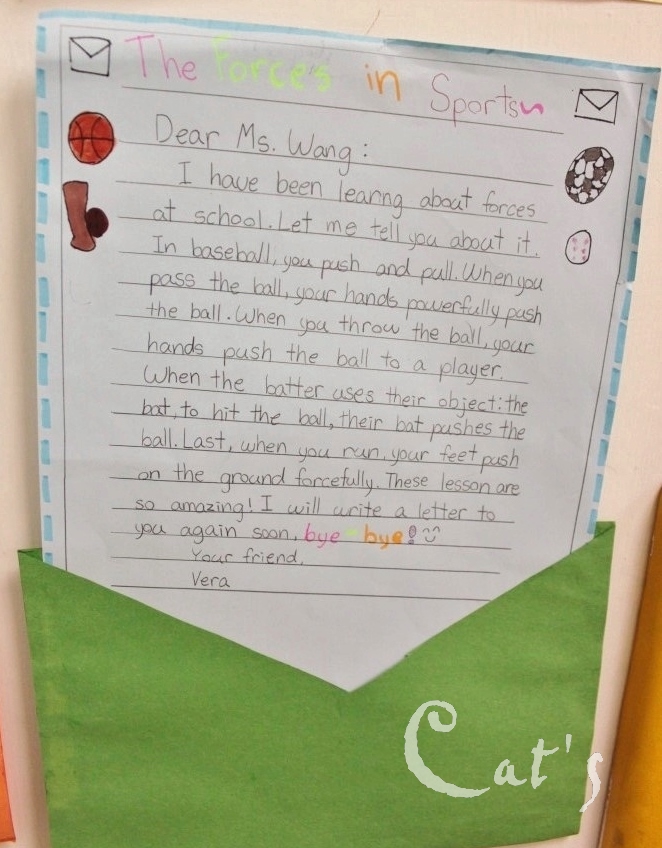 The Forces in Sports
Dear Ms. Wang:
I have been learng about forces
at school. Let me tell you about it.
In baseball, you push and pull. When you
pass the ball, your hands powerfully push
the ball. When you throw the ball, your
hands push the ball to a player.
When the batter uses their object: the
bat, to hit the ball, their bat pushes the
ball. Last, when you run, your feet push
on the ground forcefully. These lesson are
so amazing! I will write a letter to
you again soon, bye-bye!
Your friend,
Vera
Cat's